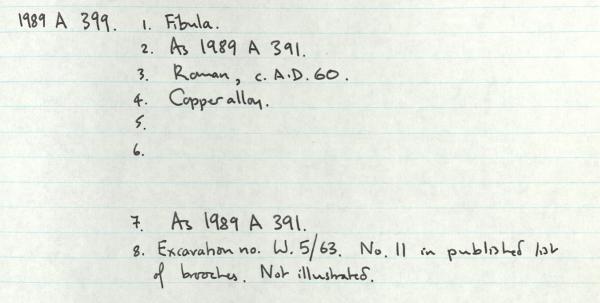 1989 A 399. 1. Fibula.
2. As 1989 A 391.
3. Roman, c. A.D. 60.
4. Copper alloy.
5.
6.
7. As 1989 A 391.
8. Excavation no. W. 5/63. No. 11 in published list
of brooches. Not illustrated.